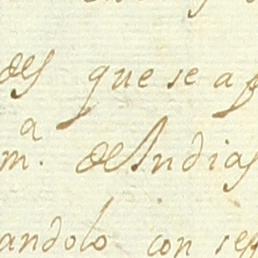 des que se a
m.ª de Indias
andolo con se